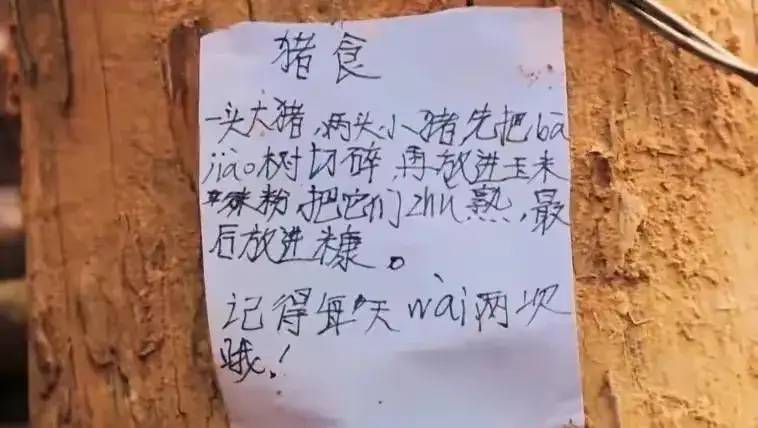 猪食
一头大猪,两头小猪先把bā
jiāo树切碎,再放进玉米
粉,把它们zhǔ熟,最
后放进糠。
记得每天wài两次
哦!